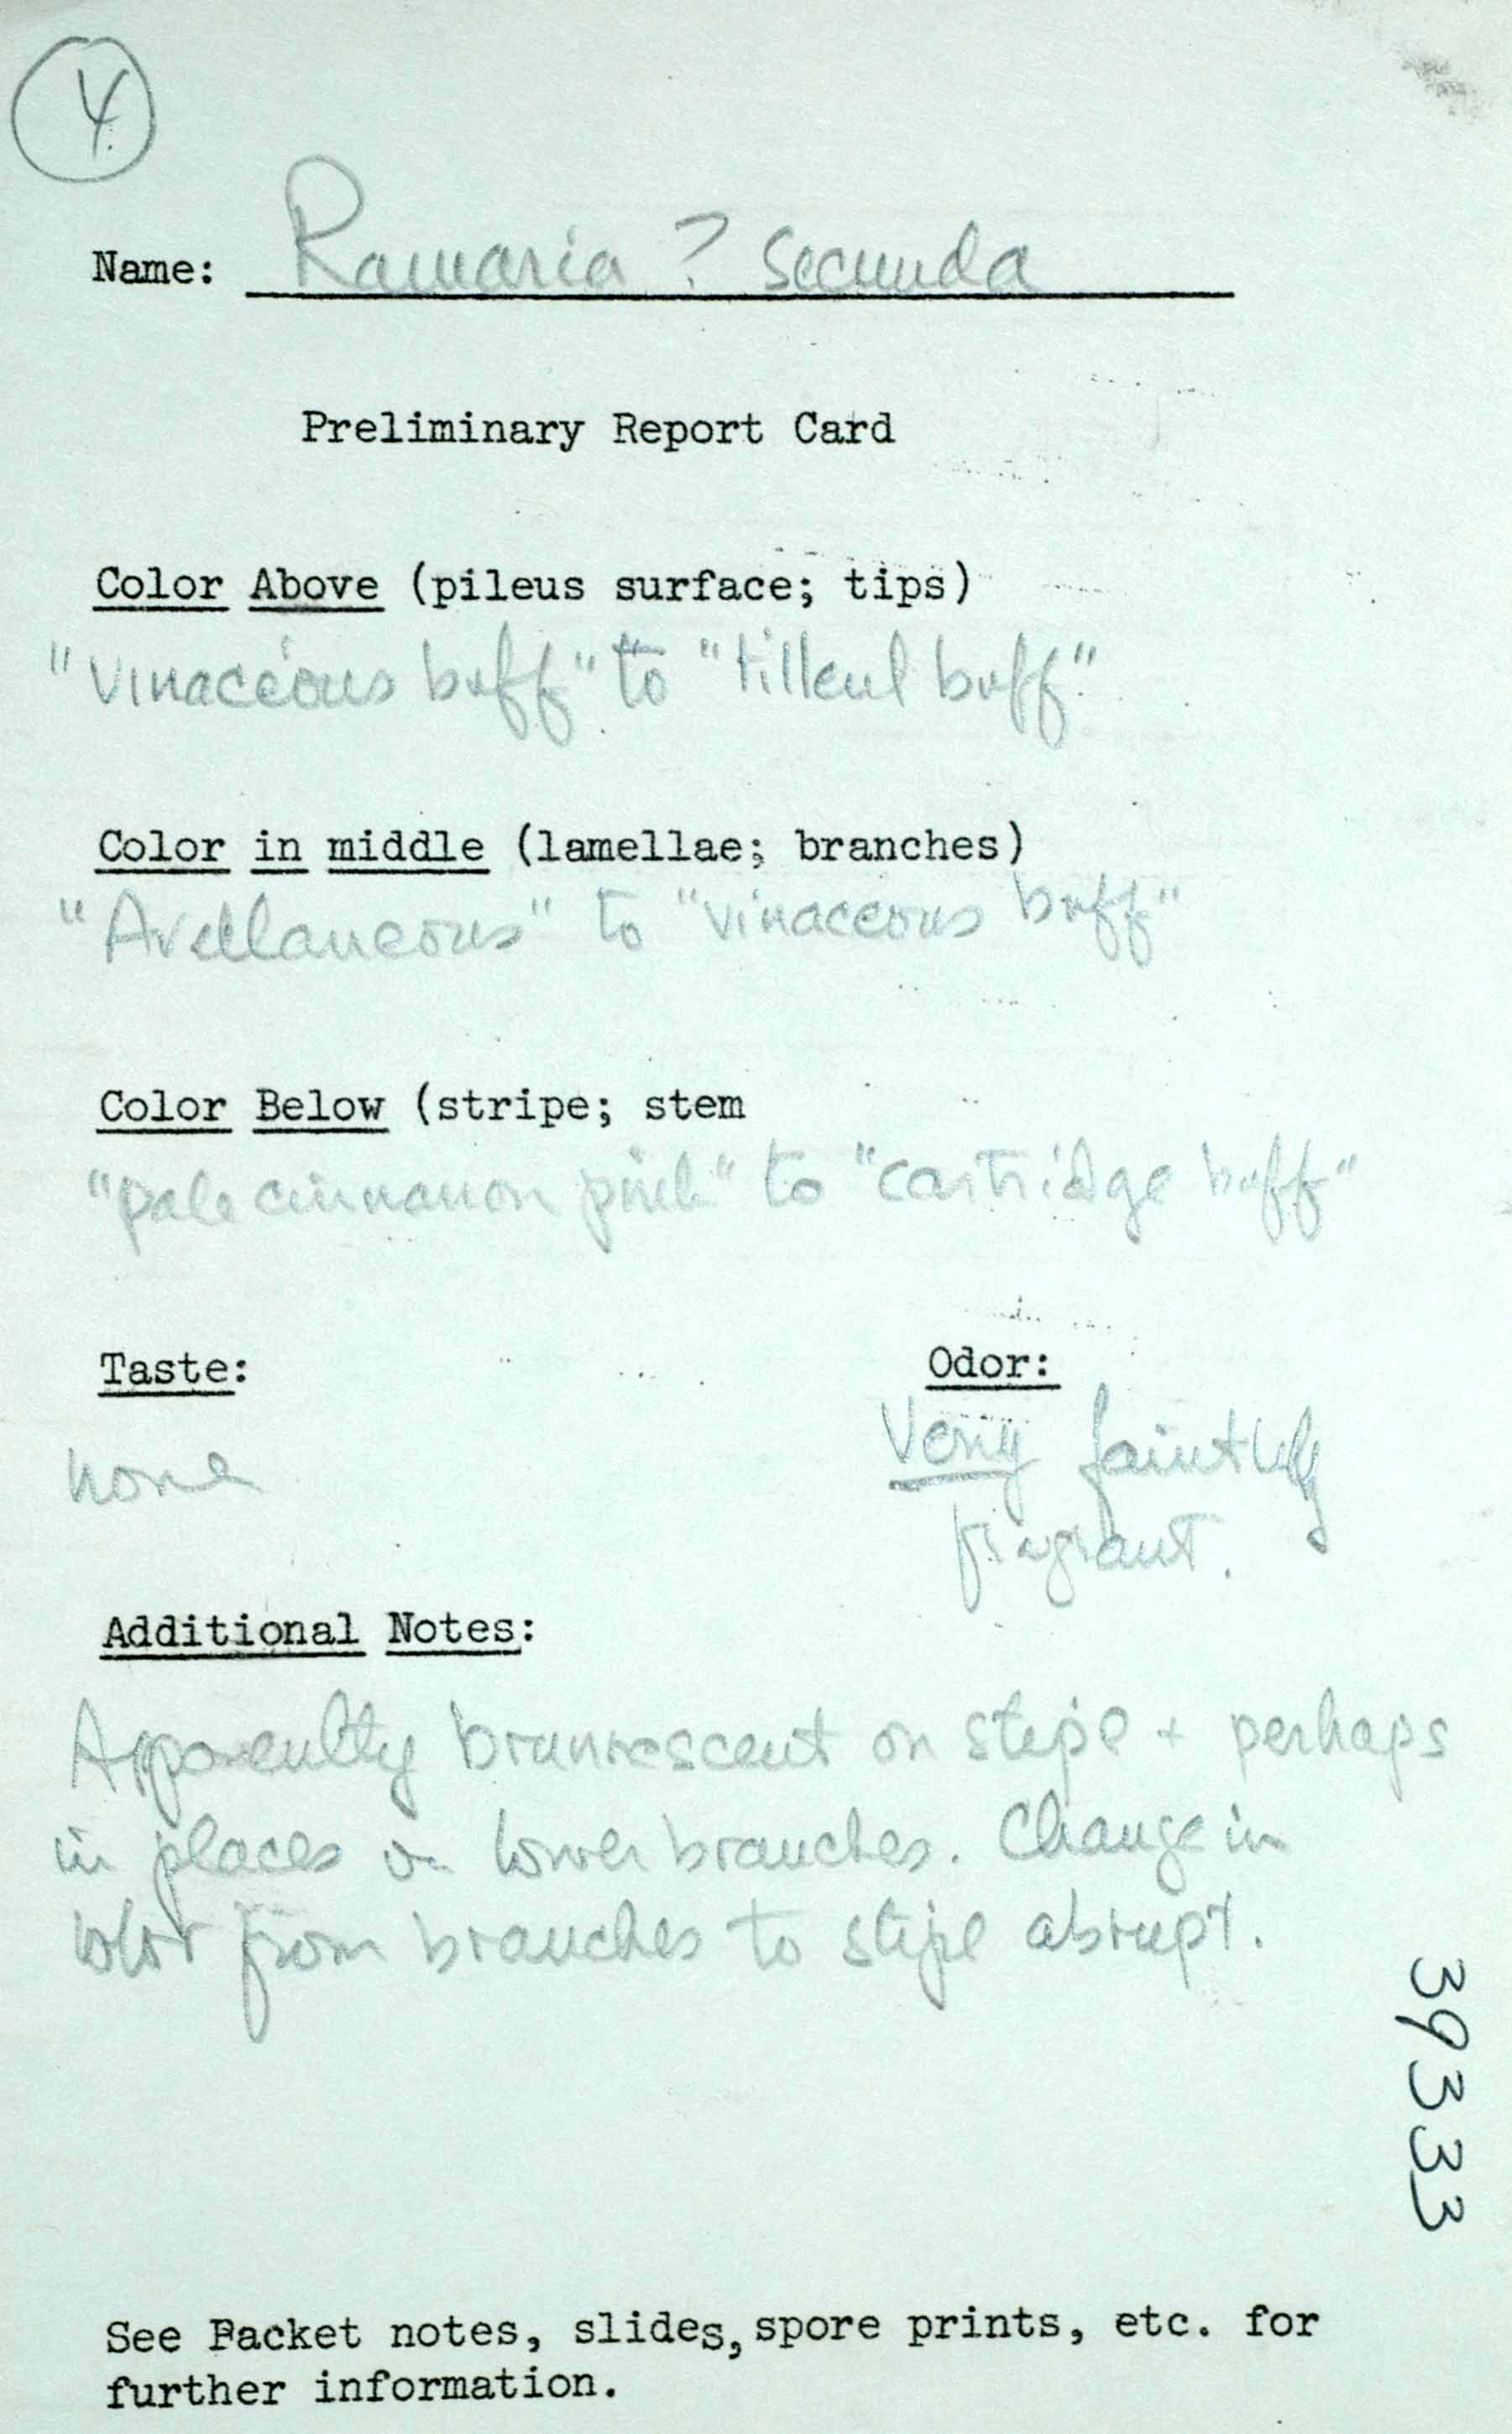 4
Name: Ramaria ? secunda
Preliminary Report Card
Color Above (pileus surface; tips)
"Vinaceous buff" to "tilleul buff"
Color in middle (lamellae; branches)
"Avellaneous" to "vinaceous buff"
Color Below (stripe; stem
"pale cinnamon pink" to "cartridge buff"
Taste: Odor:
none Very faintly
fragrant.
Additional Notes:
Apparently brunnescent on stipe + perhaps
in places on lower branches. Change in
color from branches to stipe abrupt.
39333
See Packet notes, slides, spore prints, etc. for
further information.